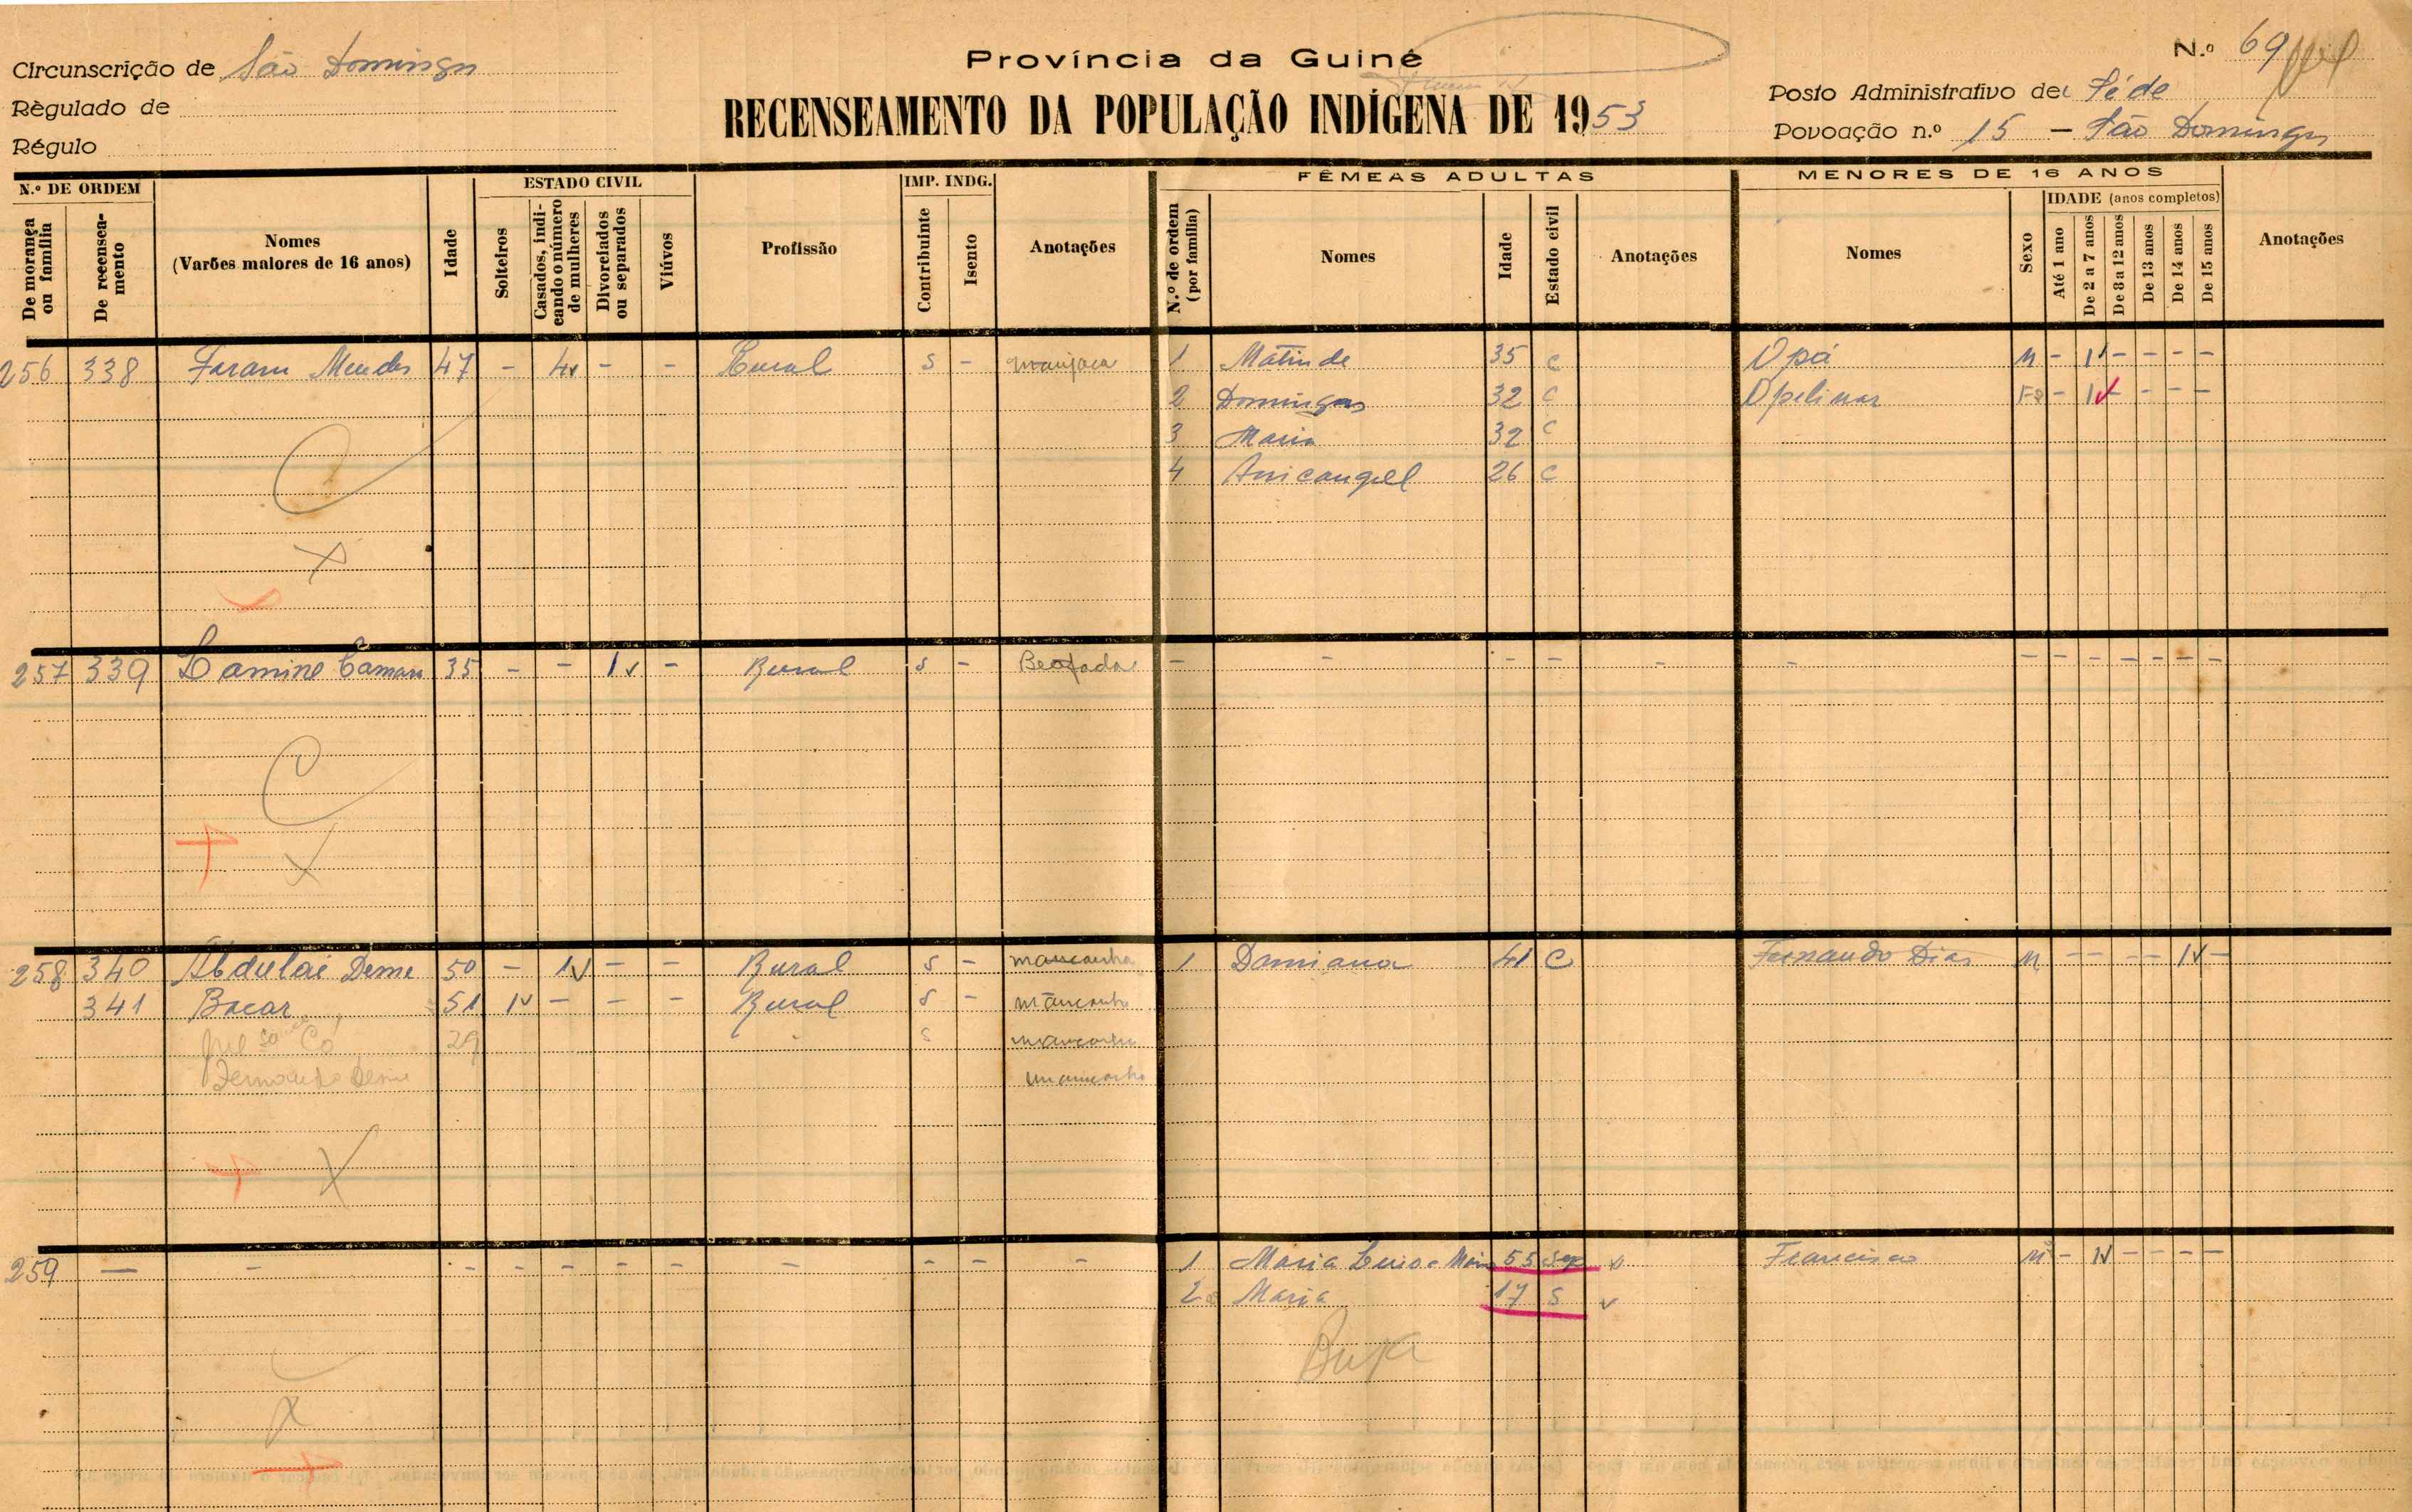 Província da Guiné
RECENSEAMENTO DA POPULAÇÃO INDÍGENA DE 1953
Circunscrição de São Domingos
Règulado de
Régulo
N.º 69
Posto Administrativo de Séde
Povoação n.º 15 — São Domingos
N.º DE ORDEM
De morança ou família
De recensea-mento
Nomes
(Varões maiores de 16 anos)
Idade
ESTADO CIVIL
Solteiros
Casados, indi-cando o número de mulheres
Divorciados ou separados
Viúvos
Profissão
IMP. INDG.
Contribuinte
Isento
Anotações
FÊMEAS ADULTAS
N.º de ordem (por família)
Nomes
Idade
Estado civil
Anotações
MENORES DE 16 ANOS
Nomes
Sexo
IDADE (anos completos)
Até 1 ano
De 2 a 7 anos
De 8 a 12 anos
De 13 anos
De 14 anos
De 15 anos
Anotações
256 338 Faram Mendes 47 - 4 - - Rural S - manjaca 1 Matinde 35 C Opá M - 1 - - - -
2 Domingas 32 C Opelinar F - 1 - - - -
3 Maria 32 C
4 26 C
257 339 Lamine Camara 35 - - 1 - Rural S - Beafada - - - - - - - - - - - - -
258 340 Abdulai Deme 50 - 1 - - Rural S - mancanha 1 Damiana 41 C Fernando Dias M - - - - 1 -
341 Bacar 51 1 - - - Rural S - mancanha
Co 29 S mancanha
Bernardo Deme mancanha
259 — - - - - - - - - - - 1 Maria Luisa 55 Sep Francisco M - 1 - - - -
2 Maria 17 S